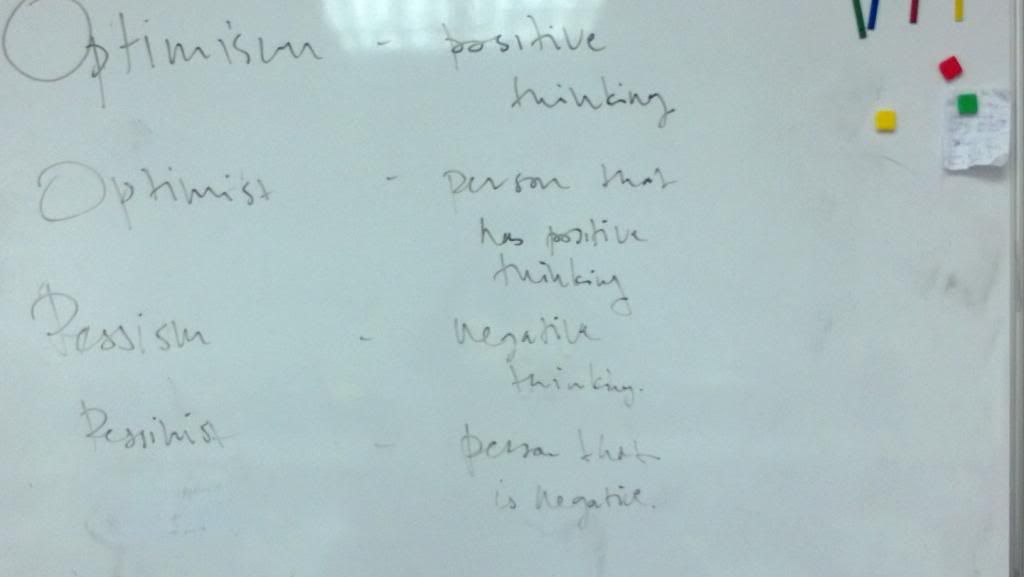 Optimism - positive
thinking
Optimist - person that
has positive
thinking
Pessism - negative
thinking.
Pessimist - person that
is negative.